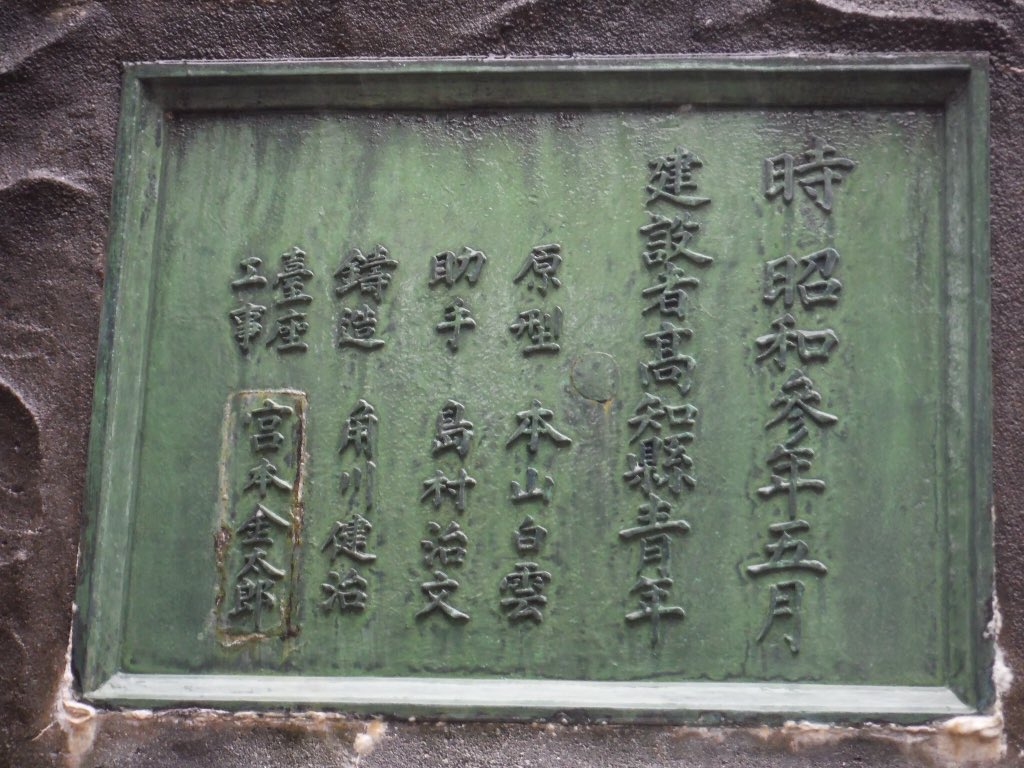 時昭和參年五月
建設者高知縣青年
原型 本山白雲
助手 島村治文
鑄造 角川建治
臺座工事 宮本金太郎